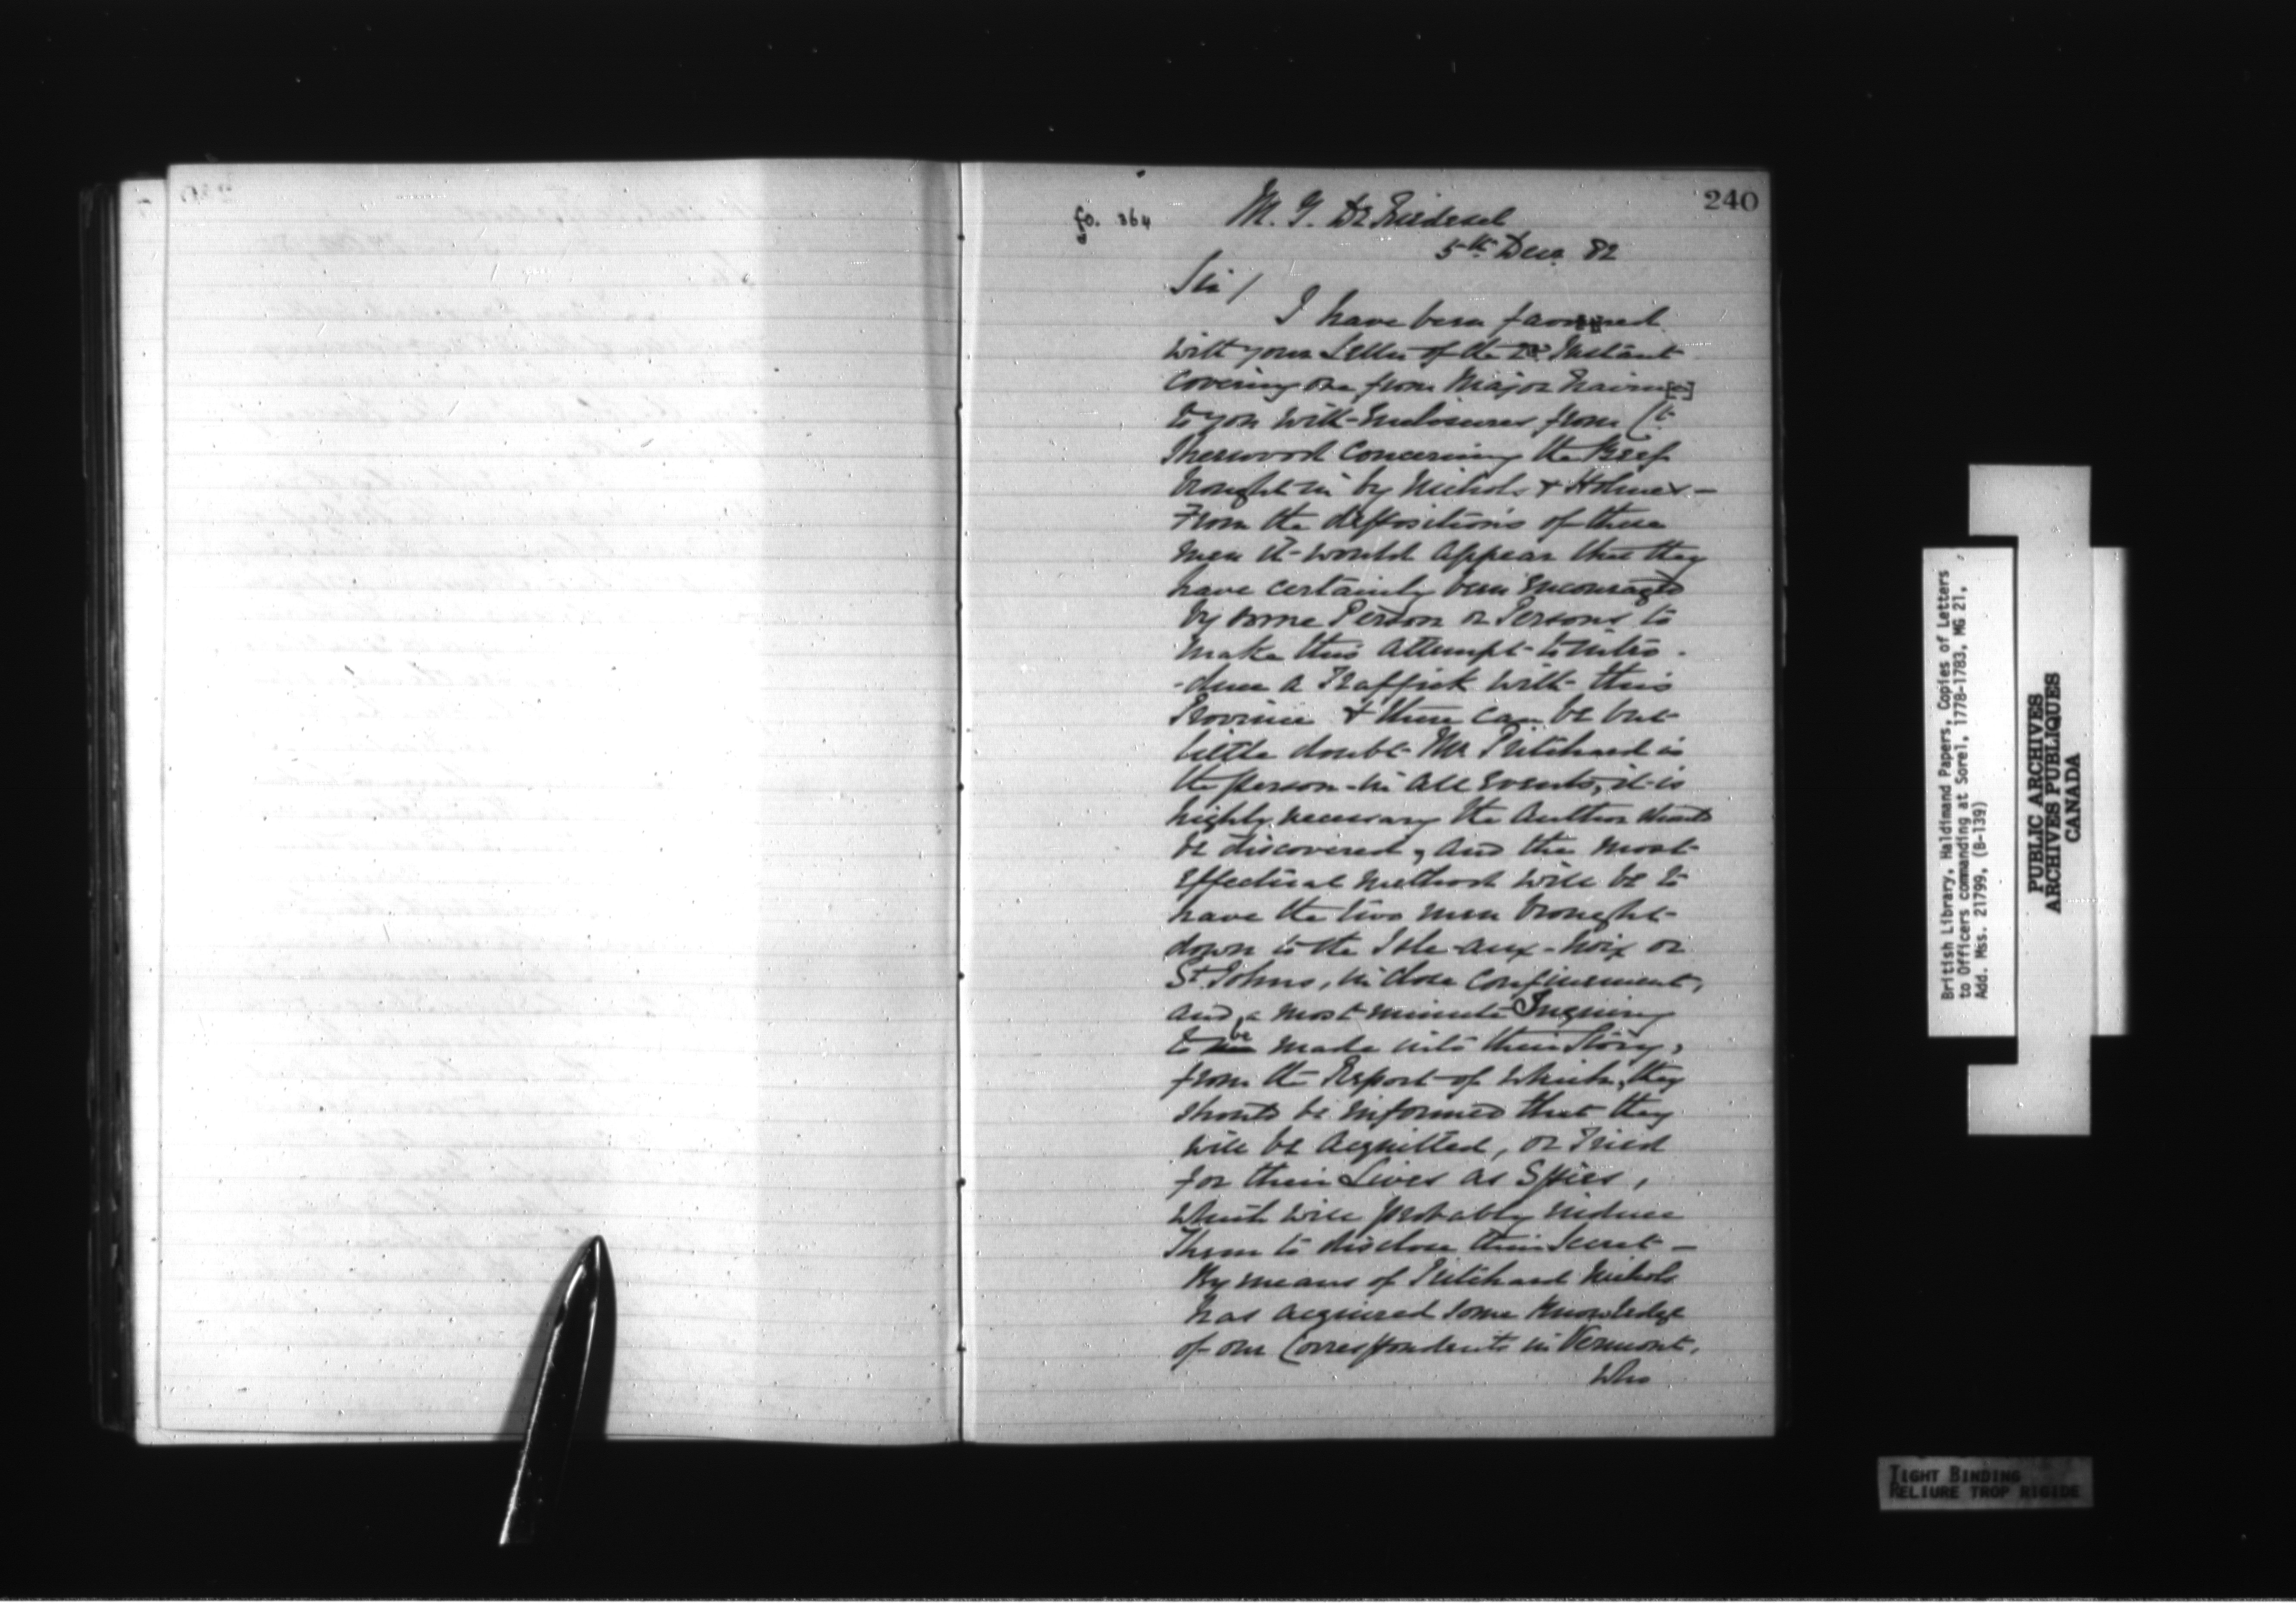 240
fo. 364
M. G. De Riedesel
5th Decr. 82
Sir /
I have been favoured
with your Letter of the 2d. Instant
covering one from Major Nairn[e]
to you with Enclosures from Ct.
Sherwood concerning the Beef
brought in by Nichols & Holmes —
From the depositions of these
men it would appear that they
have certainly been encouraged
by some Person or Persons to
make this attempt to intro -
- duce a Traffick with this
Province & there can be but
little doubt Mr Pritchard is
the person - in all Events, it is
highly necessary the Author should
be discovered, and the most
effectual method will be to
have the two men brought
down to the Isle-aux-Noix or
St. Johns, in close confinement,
and a most minute Inquiry
to be made into their Story,
from the Report of which, they
should be informed that they
will be acquitted, or Tried
for their Lives as Spies,
which will probably induce
Them to disclose their Secret —
By means of Pritchard Nichols
has acquired some Knowledge
of our Correspondents in Vermont,
Who
British Library, Haldimand Papers, Copies of Letters
to Officers commanding at Sorel, 1778-1783, MG 21,
Add. Mss. 21799, (B-139)
PUBLIC ARCHIVES
ARCHIVES PUBLIQUES
CANADA
TIGHT BINDING
RELIURE TROP RIGIDE